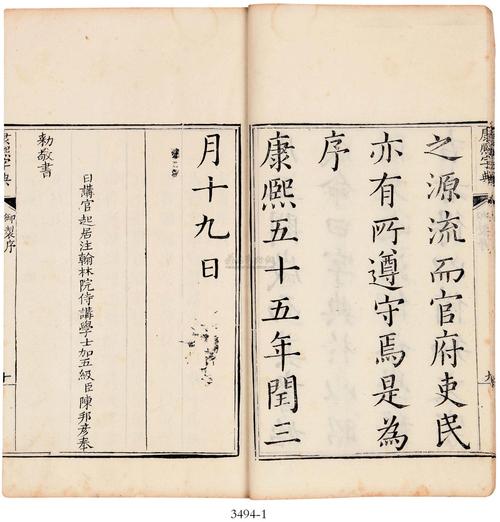 康熙字典
御製序
九
之源流而官府吏民
亦有所遵守焉是為
序
康熙五十五年閏三
月十九日
日講官起居注翰林院侍講學士加五級臣陳邦彥奉
勅敬書
康熙字典
御製序
十
3494-1